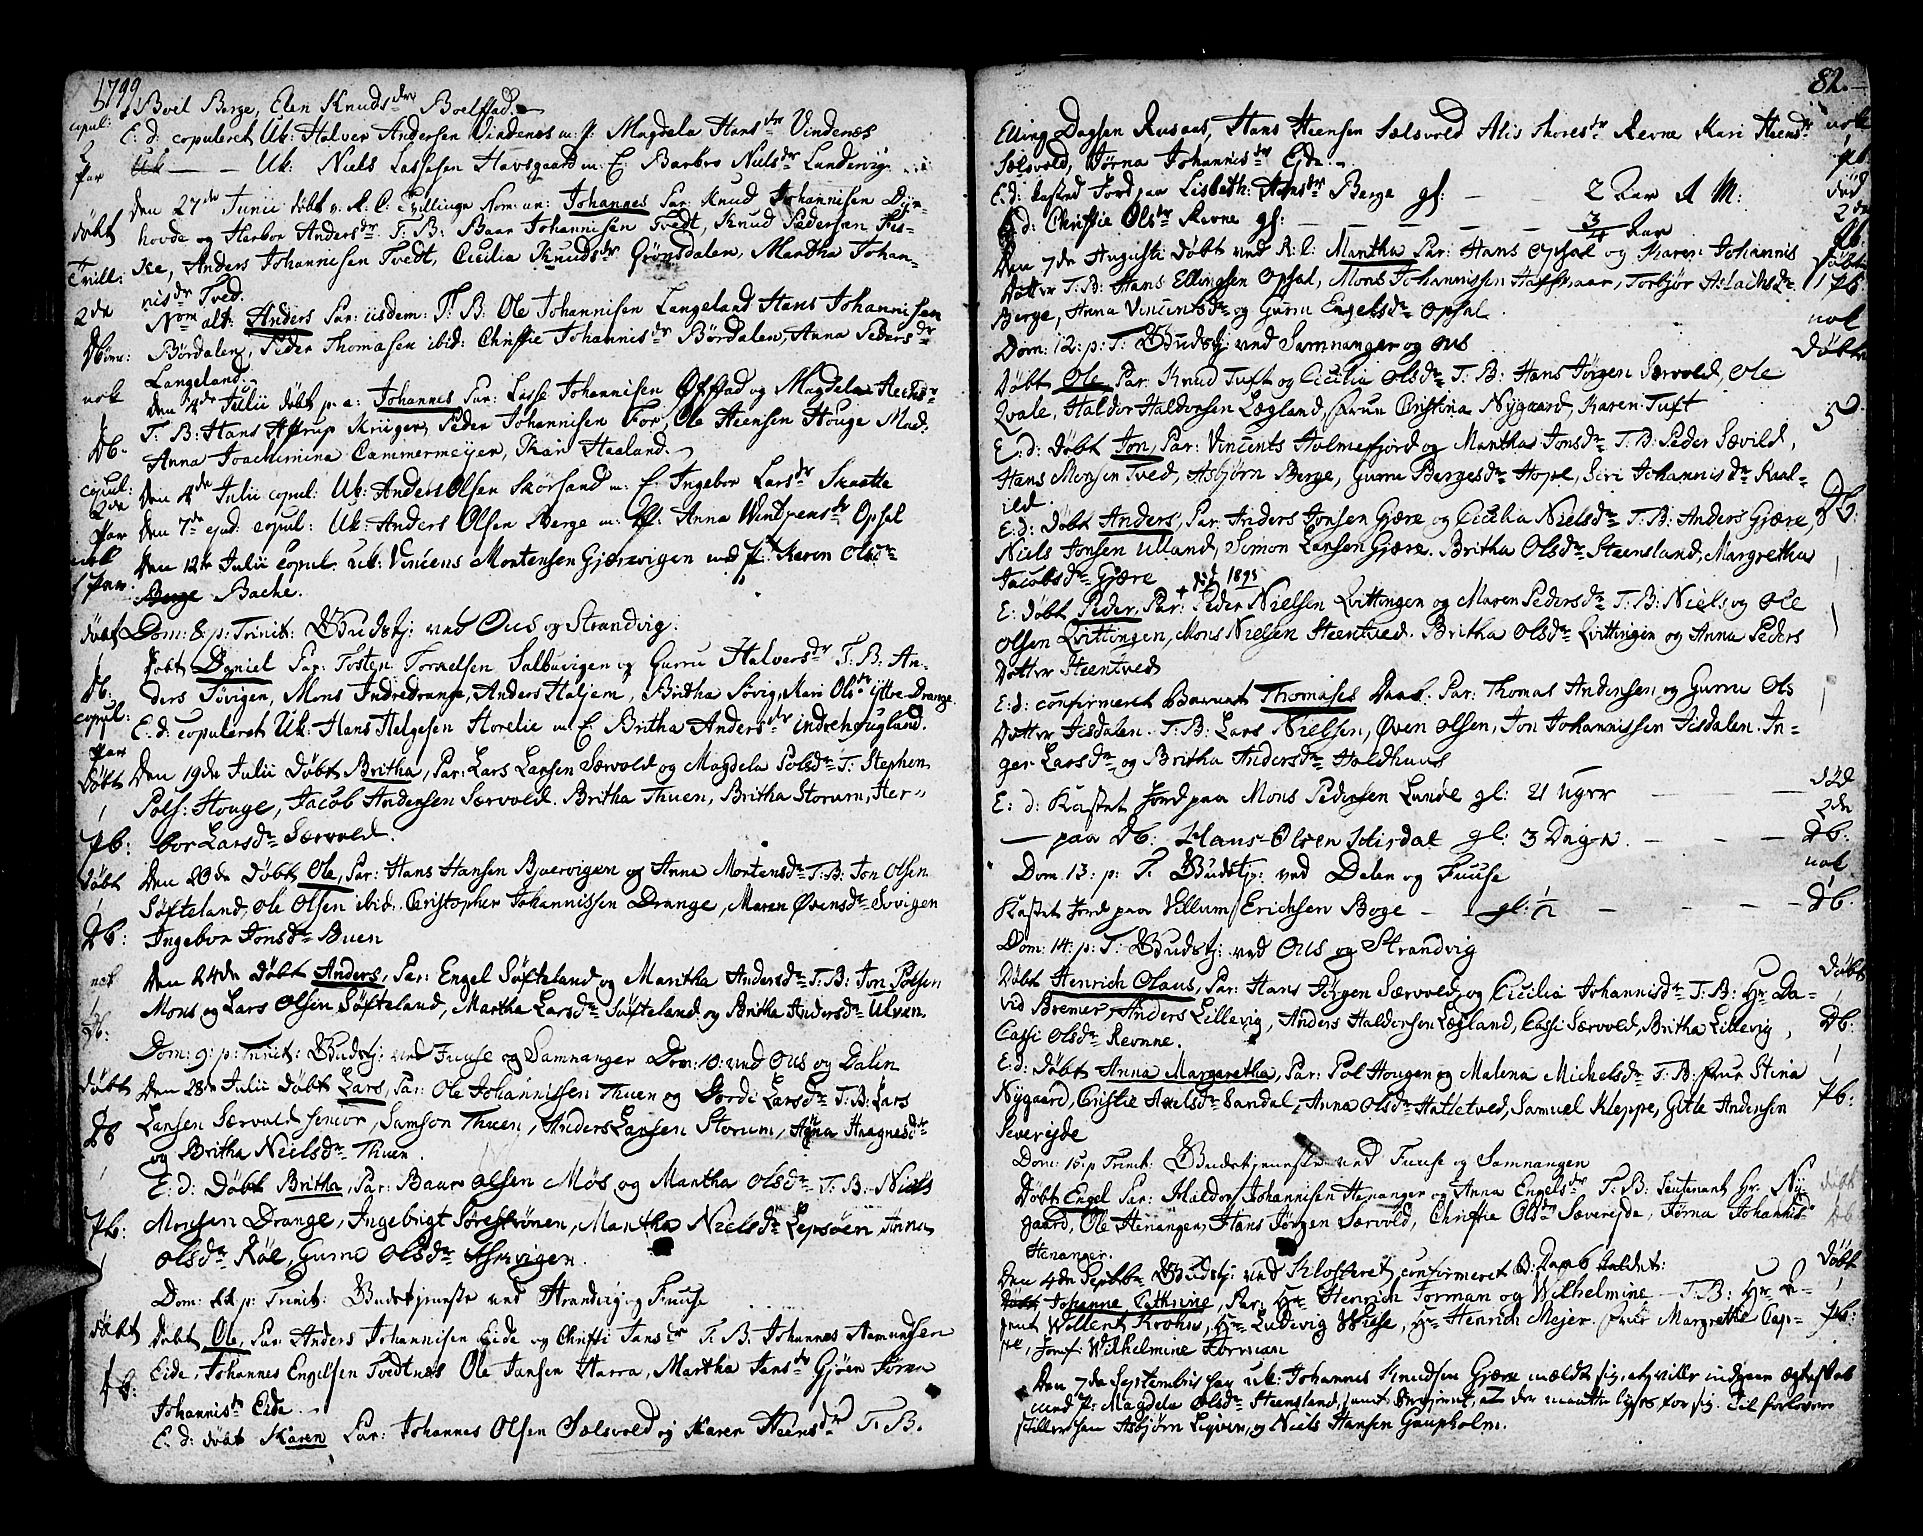 1799
Boel Berge, Elen Knudsdr Boelstad.
copul: E. d. copuleret Uk: Halver Andersen Vindenes m. P. Magdela Hansdr Vindenes
Par — — Uk: Niels Lassesen Havsgaard m. E. Barbro Nielsdr Lundervig
den 27de Junii døbt v. R. C. Tvillinge Nom: un: Johannes Par: Knud Johannisen Dyr-
døbt hovde og Herbor Andersdr T: B: Baar Johannisen Tvedt, Knud Pedersen Fis-
Tvill: ke, Anders Johannisen Tvedt, Cecilia Knudsdr Grøndalen, Martha Johan-
nisdr Tved.
2de Nom alt: Anders Par: iisdem: T: B: Ole Johannisen Langeland Hans Johannisen
Børdalen, Peder Thomasen ibid: Christie Johannisdr Børdalen, Anna Pedersdr
Langeland.
nok den 4de Julii døbt p. a: Johannes Par: Lasse Johannisen Øfstad og Magdela
T. B: Hans Hstrup Krüger, Peder Johannisen For, Ole Steensen Houge Mad.
Db. Anna Joachimina Cammermeyer, Kari Haaland.
copul: den 4de Julii copul: Uk: Anders Olsen Skorsand m: E. Ingebor Larsdr Skaatte
2de Par den 7de ejusd: copul: Uk: Anders Olsen Berge m: P. Anna Opsal
nok 1 Par. Den 12te Julii copul. uk: Vincens Mortensen Gjærevigen med P. Karen Olsdr
Berge Bache.
døbt Dom: 8. p: Trinit: Gudstj: ved Ous og Strandvig.
døbt Daniel Par: Tosten Tormelsen Salbuvigen og Gurru Halversdr T: B: An-
Db: ders Søvigen, Mons Indredrange, Anders Haljem, Britha Søvig, Kari Olsdr ÿttre Drange.
copul: E. d: copuleret Uk: Hans Helgesen Storelie m: E Britha Andersdr indrehougland.
Par
Døbt Den 19de Julii Døbt Britha, Par: Lars Larsen Særvold og Magdela Polsdr T: Stephen
1 Pols: Houge, Jacob Andersen Særvold. Britha Thuen, Britha Storum, Her-
Pb: bor Larsdr Særvold.
Døbt Den 20de Døbt Ole, Par: Hans Hansen Bjuervigen og Anna Mortensdr T: B: Jon Olsen
1 Søfteland, Ole Olsen ibid. Christopher Johannissen Drange, Maren Øvensdr Søvigen
Db: Ingebor Jonsdr Buen
nok Den 24de Døbt Anders, Par: Engel Søfteland og Maritha Andersdr T: B: Jon Polsen
1 Mons og Lars Olsen Søfteland, Martha Larsdr Søfteland og Britha Andersdr Ulven.
Db:
Dom: 9: p: Trinit: Gudstj: ved Fuuse og Samnanger Dom: 10: ved Ous og Dalen
døbt Den 28de Julii Døbt Lars, Par: Ole Johannissen Thuen og Gordi Larsdr T: B: Lars
Db Larsen Særvold senior, Samson Thuen, Anders Larsen Storum, Anna Haagnesdr
1 og Britha Nielsdr Thuen.
E: d: Døbt Britha, Par: Baar Olsen Møs og Martha Olsdr T: B: Niels
Pb: Monsen Drange, Ingebrigt Sørestrønen, Martha Nielsdr Lepsøen, Anna
1 Olsdr Røe, Gurru Olsdr
Dom: 11 p: Trinit: Gudstjeneste ved Strandvig og Fuuse
døbt Døbt Ole, Par: Anders Johannisen Eide og Christi Jansdr T. B. Johannes Aamundsen
Eide, Johannes Engelsen Tvedtnes Ole Jansen Harra, Martha Jansdr Gjøen Sørna
Pb: Johannisdr Eide.
E. d: døbt Karen Par: Johannes Olsen Sælsvold og Karen Steensdr T: B.

82.
Elling Dagsen Rusaas, Hans Steensen Sælsvold Alis Revne Kari Steensdr nok
Sælsvold, Jørna Johannisdr Eide. 1 Pb
E: d: kasted Jord paa Lisbeth: Hansdr Berge gl: — — 2 Aar A M: død
E: d: Christie Olsdr Revne gl: — — — — — — 3/4 Aar 2de Pb.
Den 7de Augusti døbt ved R. C. Martha Par: Hans Opsal og Karen Johannis Døbt
Dotter T: B: Hans Ellingsen Opsal, Mons Johannissen Haffskaar, Torbjør Aslachsdr 1 Pb:
Berge, Anna Vincentsdr og Gurru Engelsdr Opsal.
Dom: 12: p: T: Gudstj: ved Samnanger og Ous nok
Døbt Ole Par: Knud Tuft og Cicilia Olsdr T: B: Hans Jörgen Særvold, Ole Døbte
Qvale, Haldor Haldorsen Lægland, fruu Christina Nÿgaard, Karen Tuft 5
E: d: Døbt Jon, Par: Vincents Holmefjord og Martha Jonsdr T: B: Peder Sævild,
Hans Monsen Tved, Asbjörn Berge, Gurru Bergesdr Hope, Siri Johannisdr Raal-
ild Db:
E: d: Døbt Anders, Par: Anders Jonsen Gjære og Cicilia Nielsdr T: B: Anders Gjære,
Niels Jonsen Ulland, Simon Larsen Gjære. Britha Olsdr Steensland, Margretha
Jacobsdr Gjære
+ død 1895
E: døbt Peder, Par: Peder Nielsen Qvittingen og Maren Pedersdr T: B: Niels og Ole
Olsen Qvittingen, Mons Nielsen Steentved. Britha Olsdr Qvittingen og Anna Peders
Dotter Steentved
E: d: confirmeret Barnet Thomases Daab. Par: Thomas Andersen og Gurru Ols
Dotter Jisdalen. T: B: Lars Nielsen, Øven Olsen, Jon Johannissen Jisdalen. In-
ger Larsdr og Britha Andersdr Holdhuus
E: d: Kastet Jord paa Mons Pedersen Lunde gl: 21 uger — — — død
— paa Db: Hans Olsen Hisdal gl: 3 Dage — — — 2de Db:
Dom: 13: p: T: Gudstj: ved Dalen og Fuuse nok
Kastet Jord paa Villum Erichsen Boge — gl: 1/2 — — — Db:
Dom: 14: p: T: Gudstj: ved Ous og Strandvig
Døbt Henrich Claus, Par: Hans Jörgen Særvold, og Cicilia Johannisdr T: B: Hr. Da- Døbt
vid Bremer, Anders Lillevig, Anders Haldorsen Lægland, Cassi Særvold, Britha Lillevig, Db:
Cassi Olsdr Revnne.
E: d: Døbt Anna Margaretha, Par: Pol Hougen og Malena Michelsdr T: B: frue Stina
Nÿgaard, Cristie Axelsdr Sandal, Anna Olsdr Hatletved, Samuel Kleppe, Gitle Andersen Pb:
Severejde
Dom: 15: p Trinit: Gudstjeneste ved Fuuse og Samnanger
Døbt Engel Par: Haldor Johannisen Henanger og Anna Engelsdr T: B: Lieutenant Hr. Ny- døbt
gaard, Ole Henanger, Hans Jørgen Særvold, Christie Olsdr Særvejde, Jørna Johannisdr Db
Henanger.
Den 4de Septbr Gudstj: ved Klosteret confirmeret B: Daab holdet: Døbt
Døbt Johanne Cathrine, Par: Hr. Henrich Forman og Wilhelmine — T: B: Hr. A-
Willert Krohn, Hr. Ludevig Wiese, Hr. Henrich Mejer. frue Margrethe Cap- Pb:
pe, Jomf: Wilhelmine Forman
Den 7de Septembris har uk: Johannes Knudsen Gjære meldt sig, at ville indgaae Ægteskab
med P. Magdela Olsdr Steensland, samt begjeret, at der maatte lyses for sig. Til forlovere
stiller han Asbjørn Ligven, og Niels Hansen Gaupholm.